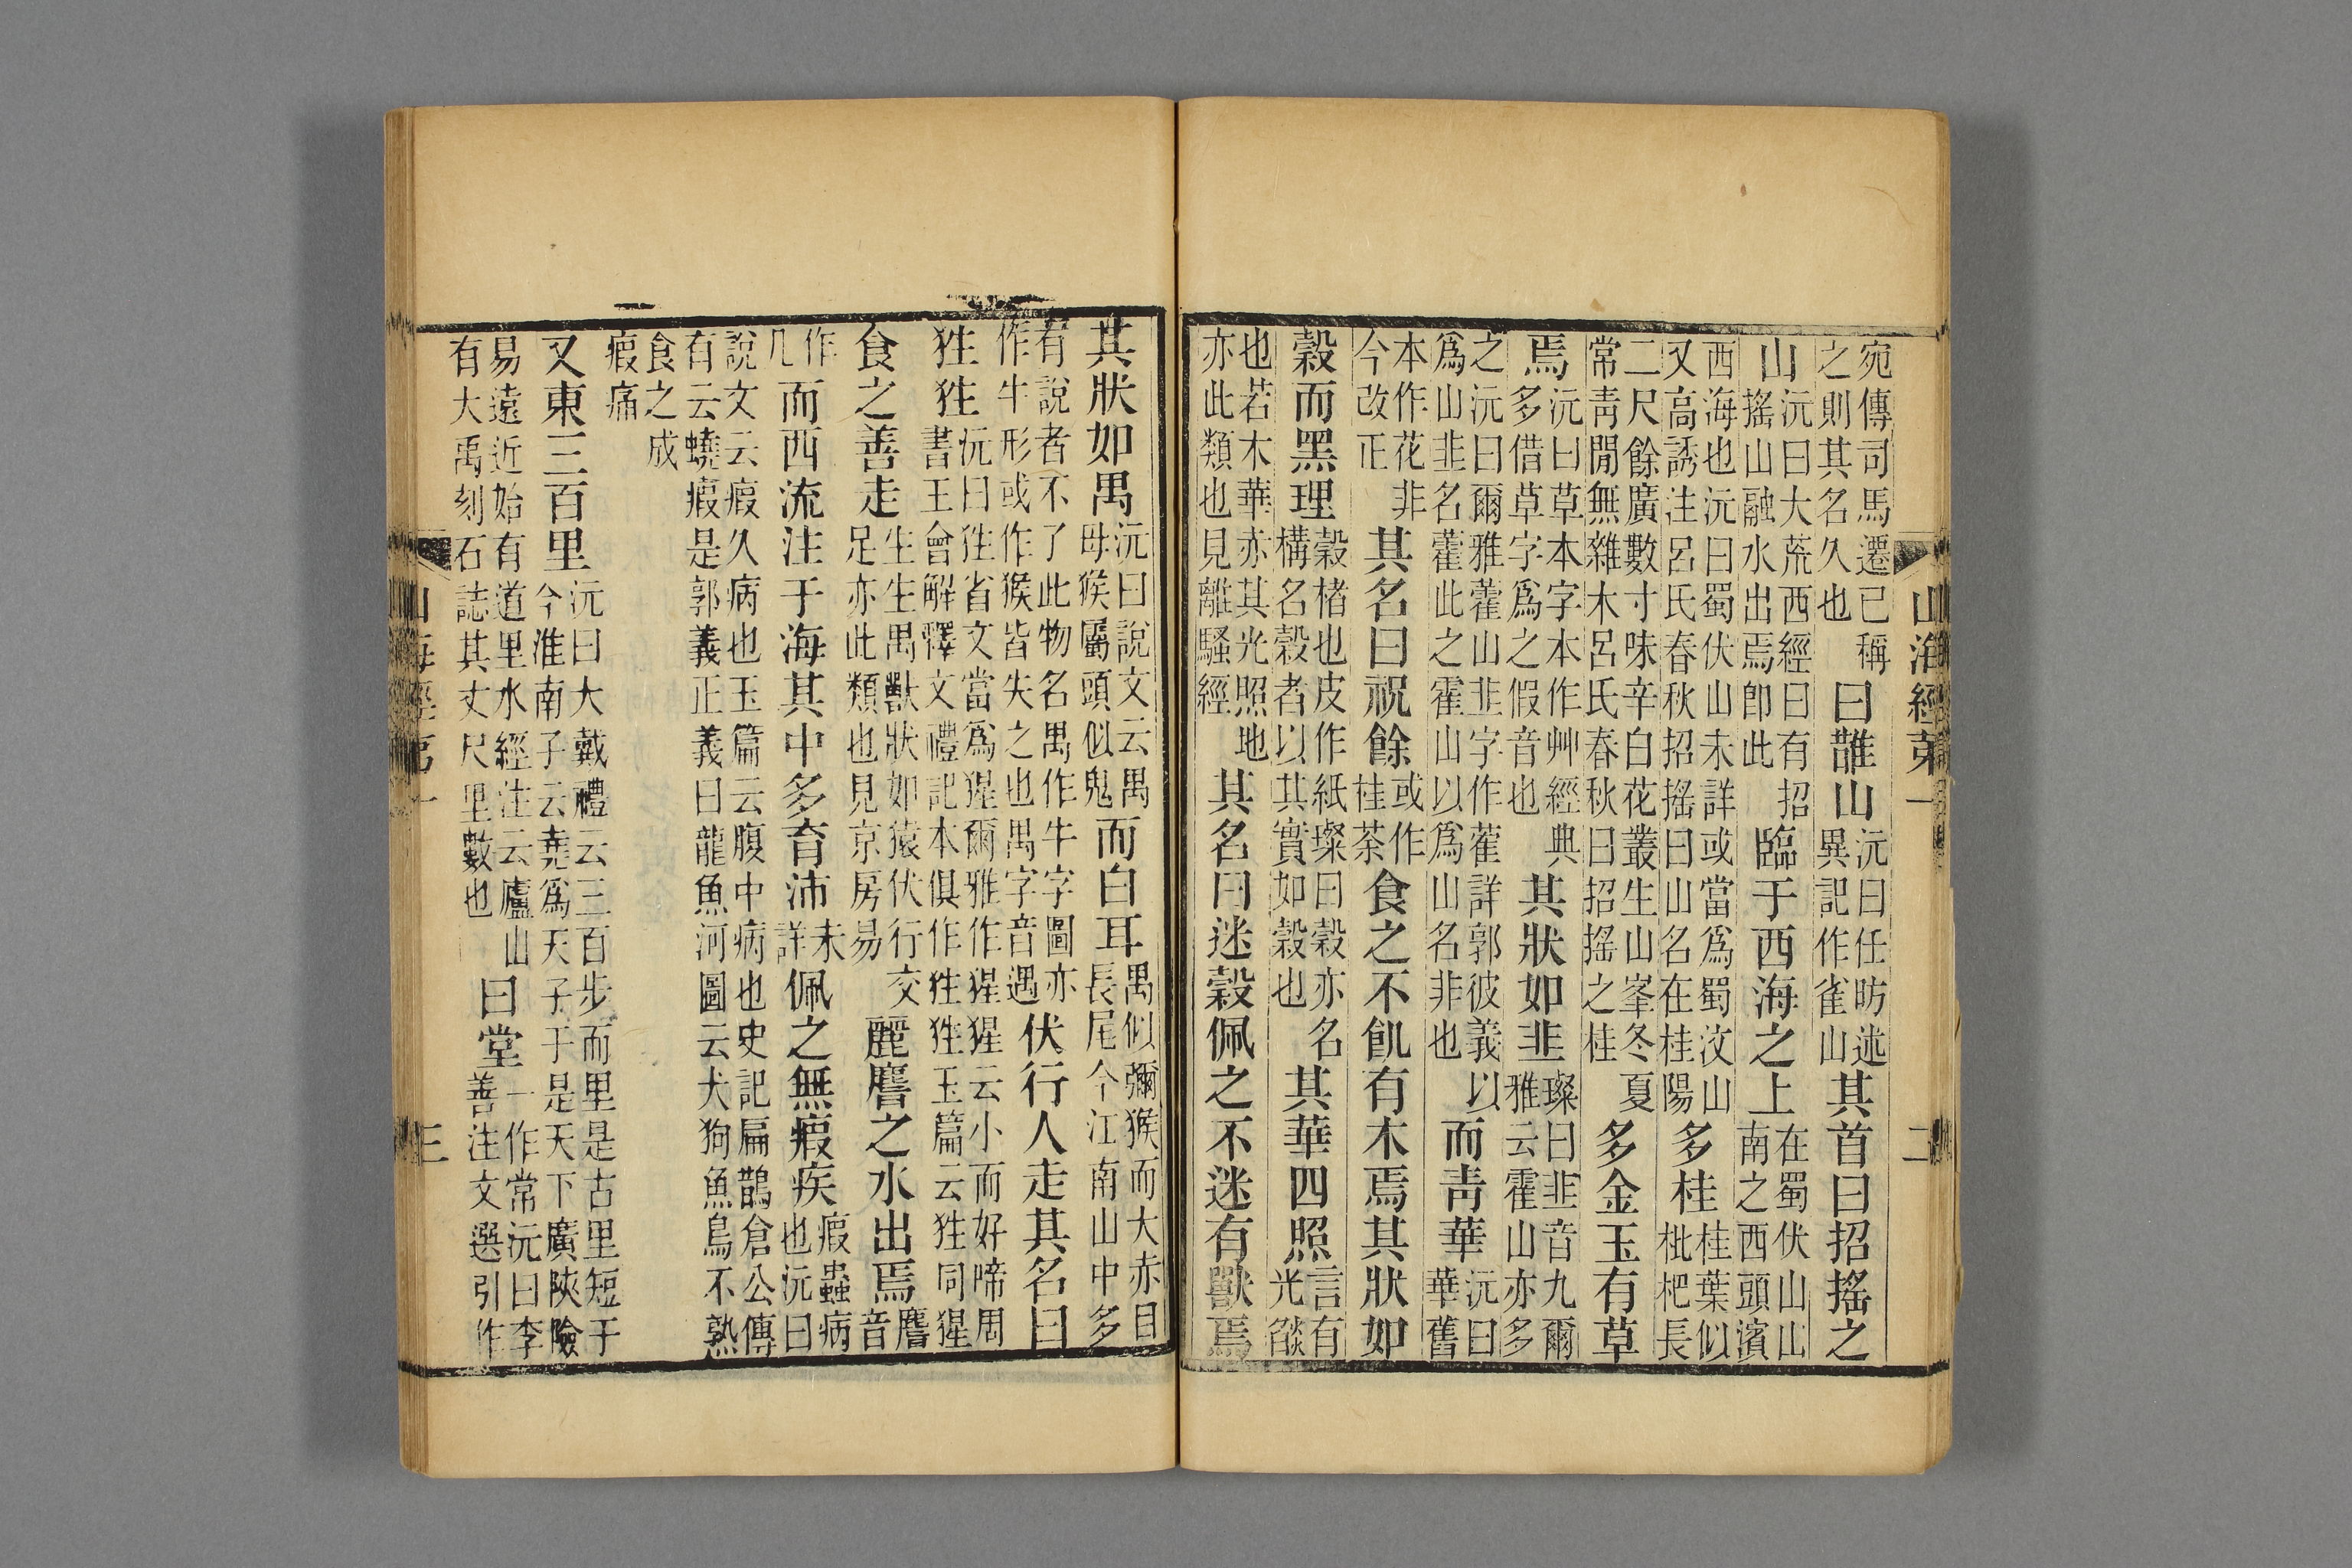 山海經第一 二
宛傳司馬遷已稱之則其名久也曰䧿山沅曰任昉述異記作雀山其首曰招搖之
山沅曰大荒西經曰有招搖山融水出焉卽此臨于西海之上在蜀伏山山南之西頭濱
西海也沅曰蜀伏山未詳或當爲蜀汶山又高誘注呂氏春秋招搖曰山名在桂陽多桂桂葉似枇杷長
二尺餘廣數寸味辛白花叢生山峯冬夏常靑閒無雜木呂氏春秋曰招搖之桂多金玉有草
焉沅曰草本字本作艸經典多借草字爲之假音也其狀如韭璨曰韭音九爾雅云霍山亦多
之沅曰爾雅藿山韭字作藿詳郭彼義以爲山韭名藿此之霍山以爲山名非也而靑華沅曰華舊
本作花非今改正其名曰祝餘或作桂荼食之不飢有木焉其狀如
榖而黑理榖楮也皮作紙璨曰榖亦名構名榖者以其實如榖也其華四照言有光燄
也若木華亦其光照地亦此類也見離騷經其名曰迷榖佩之不迷有獸焉
其狀如禺沅曰說文云禺母猴屬頭似鬼而白耳禺似獼猴而大赤目長尾今江南山中多
有說者不了此物名禺作牛字圖亦作牛形或作猴皆失之也禺字音遇伏行人走其名曰
狌狌沅曰狌省文當爲猩爾雅作猩猩云小而好啼周書王會解釋文禮記本俱作狌狌玉篇云狌同猩
食之善走生生禺獸狀如猿伏行交足亦此類也見京房易麗𪊨之水出焉𪊨音
作几而西流注于海其中多育沛未詳佩之無瘕疾瘕蟲病也沅曰
說文云瘕久病也玉篇云腹中病也史記扁鵲倉公傳有云蟯瘕是郭義正義曰龍魚河圖云犬狗魚鳥不熟
食之成
瘕痛
又東三百里沅曰大戴禮云三百步而里是古里短于今淮南子云堯爲天子于是天下廣陜險
易遠近始有道里水經注云廬山有大禹刻石誌其丈尺里數也曰堂一作常沅曰李善注文選引作
山海經第一 三